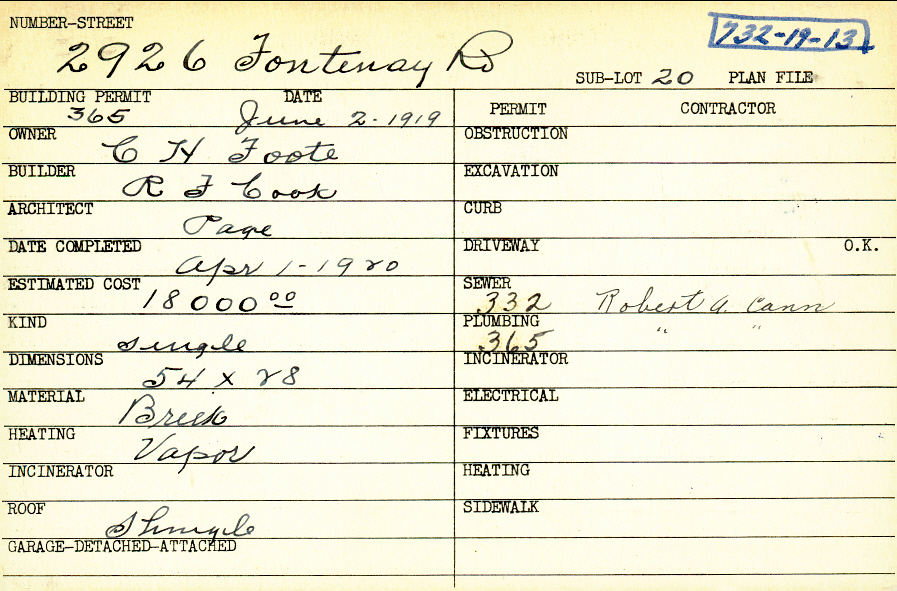 NUMBER-STREET
732-19-13
2926 Fontenay Rd
SUB-LOT 20 PLAN FILE
BUILDING PERMIT DATE
365 June 2-1919
OWNER
C H Foote
BUILDER
R F Cook
ARCHITECT
Page
DATE COMPLETED
Apr 1-1920
ESTIMATED COST
18000 00
KIND
single
DIMENSIONS
54 x 28
MATERIAL
Brick
HEATING
Vapor
INCINERATOR
ROOF
Shingle
GARAGE-DETACHED-ATTACHED
PERMIT CONTRACTOR
OBSTRUCTION
EXCAVATION
CURB
DRIVEWAY O.K.
SEWER
332 Robert A. Cann
PLUMBING
365 " "
INCINERATOR
ELECTRICAL
FIXTURES
HEATING
SIDEWALK